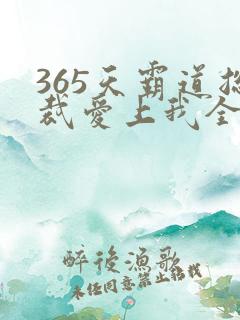 365天霸道总
裁爱上我全
醉後漁歌
未经同意禁止转载